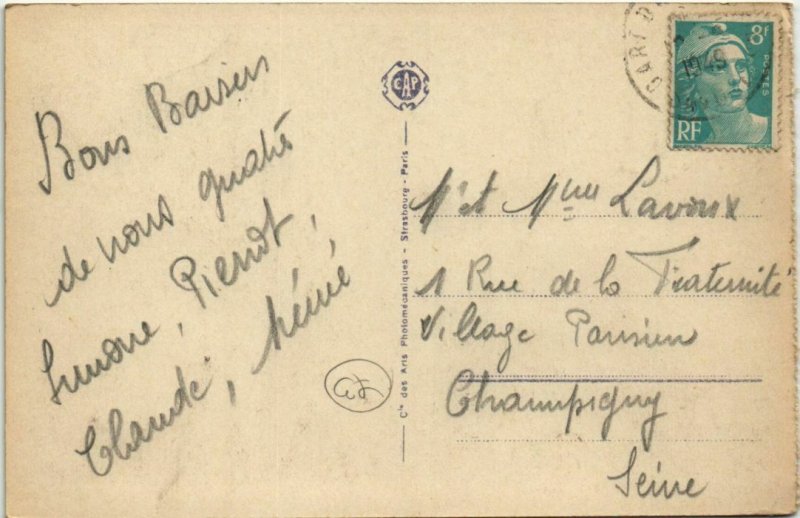 Bons Baisers
de nous quatres
Simone, Pierrot,
Claude, Mémé
CAP
Cie des Arts Photomécaniques - Strasbourg - Paris
8f
POSTES
RF
GARE D
1949
Mr et Mme Lavoux
1 Rue de la Fraternité
Village Parisien
Champigny
Seine